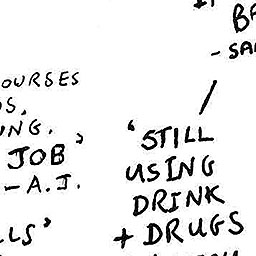 - SA
OURSES
S,
ING.
JOB'
- A.I.
LLS'
'STILL
USING
DRINK
+ DRUGS